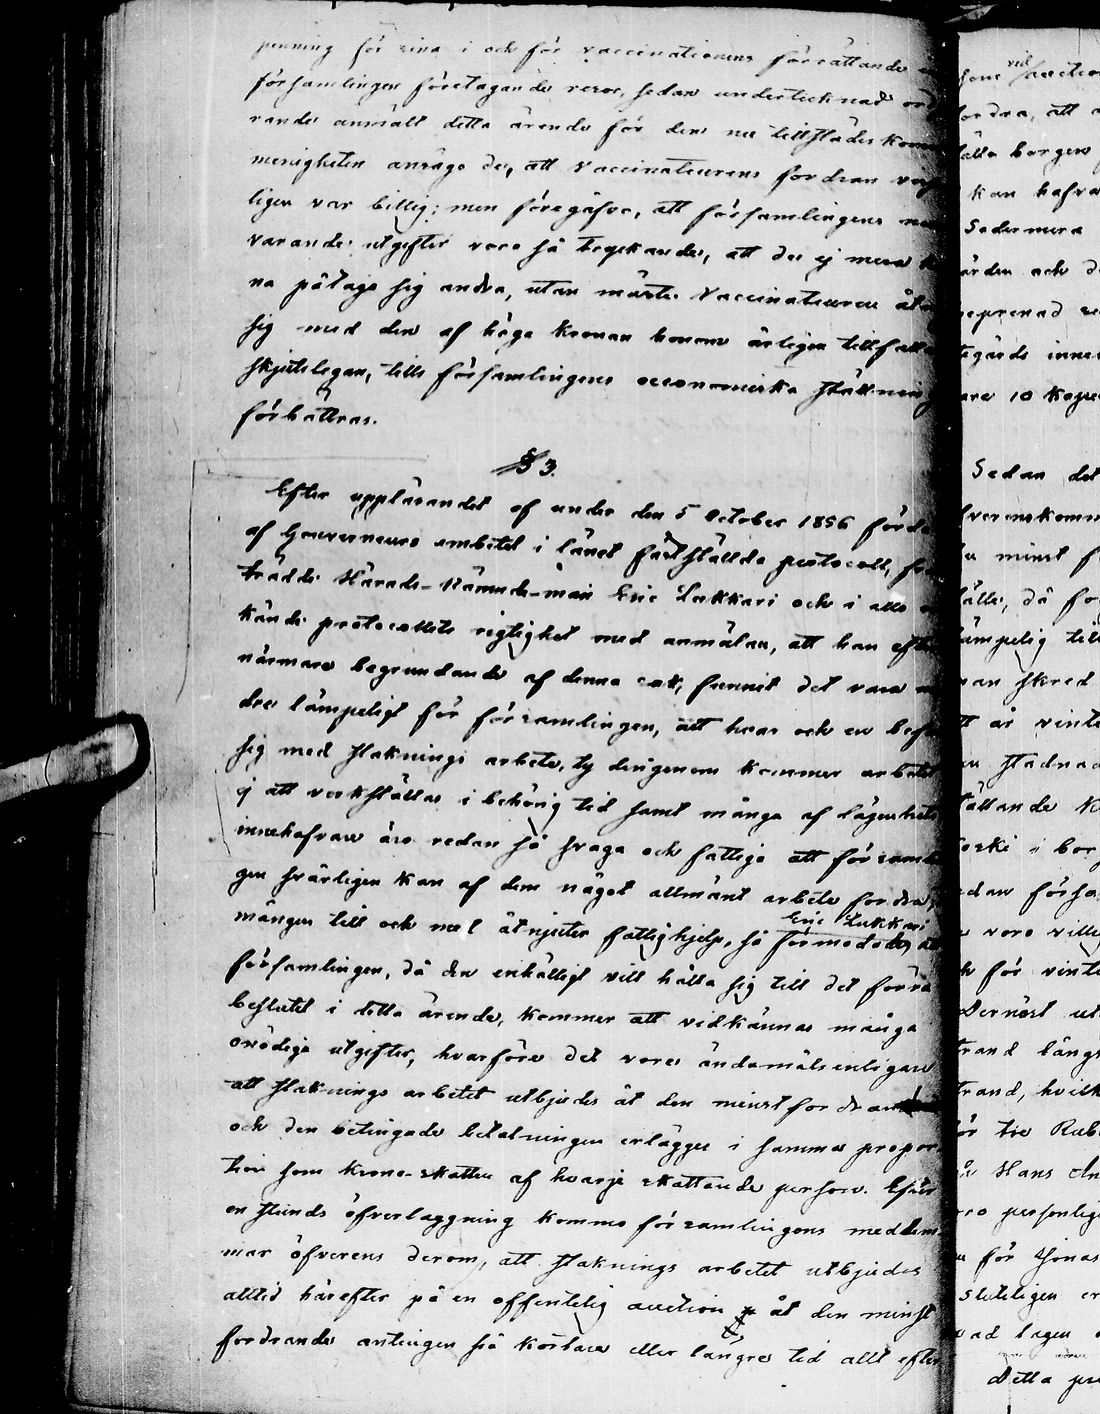 penning för sina i och för vaccinationens förrättande
församlingen företagande resor, sedan undertecknad ord
rande anmält detta ärende för den nu tillstädes kom
menigheten ansågo de, att Vaccinateurens fordran
ligen var billig; men föregåfvo, att församlingens
varande utgifter voro så tryckande, att de ej mera
na påtaga sig andra, utan måste Vaccinateuren
sig med den af höga Kronan honom årligen tillfall
skjutslegan, tills församlingens oeconomiska ställning
förbättras.
§ 3.
Efter uppläsandet af under den 5 October 1856 förd
af Gouverneurs embetet i länet fastställda protocoll,
trädde Härads-Nämnde-man Eric Lukkari och i allo
kände protocollets rigtighet med anmälan, att han efter
närmare begrundande af denna sak, funnit det vara
dre lämpeligt för församlingen, att hvar och en
sig med staknings arbete, ty derigenom kommer arbetet
ej att verkställas i behörig tid samt många af lägenhets
innehafvare äro redan så svaga och fattiga att församl
gen svårligen kan af dem något allmänt arbete fordra,
mången till och med åtnjuter fattighjelp, så förmodade Eric Lukkari, att
församlingen, då den enhälligt vill hålla sig till det förra
beslutet i detta ärende, kommer att vidkännas många
onödiga utgifter, hvarföre det vore ändamålsenligare
att staknings arbetet utbjudes åt den minst fordrande
och den betingade betalningen erlägges i samma propor
tion som krono-skatten af hvarje skattande person. Efter
en stunds öfverläggning kommo församlingens medlem
mar öfverens derom, att staknings arbetet utbjudes
alltid härefter på en offentelig auction åt den minst
fordrande antingen på kortare eller längre tid allt efter
som vid auction
fordra, att
ställa borgen
kan hafva
Sedermera
ården och
inne
are 10 Kope
Sedan det
fverenskomm
minst
ställe, då
lämpelig till
man skred
att år vint
stadnad
ställande
i bor
sedan försa
voro villig
för vint
Dernäst ut
strand längs
trand, hvilk
för tie Rub
Hans
personlig
för Jonas
sluteligen
vad lagen
Detta pro